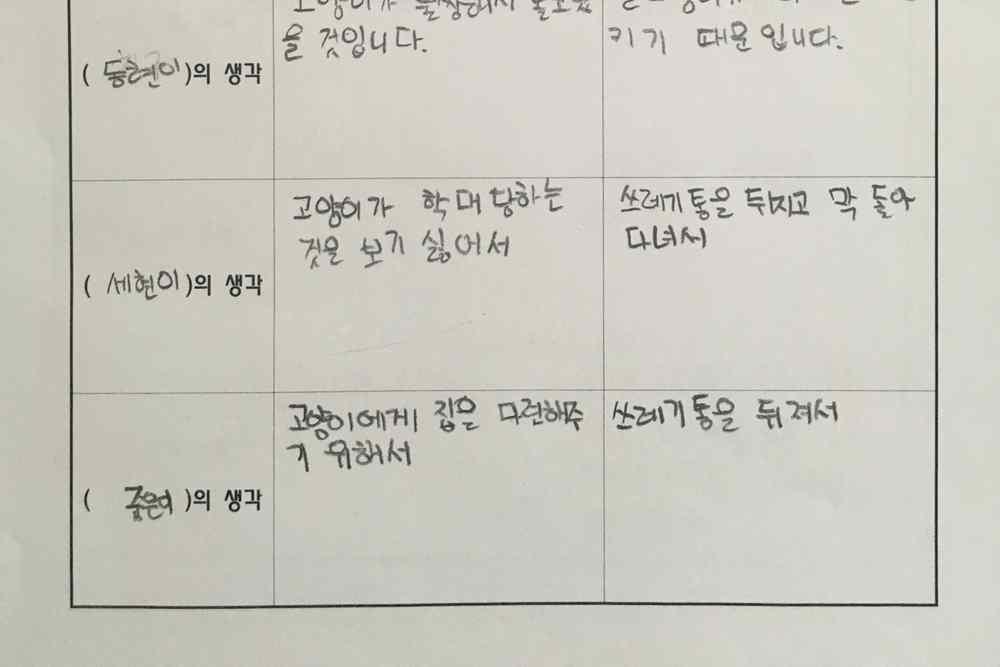 고양이가 불쌍해서 돌보았
을 것입니다.
키기 때문입니다.
( 동현이)의 생각
고양이가 학대 당하는
것을 보기 싫어서
쓰레기통을 뒤지고 막 돌아
다녀서
( 세현이)의 생각
고양이에게 집은 마련해주
기 위해서
쓰레기통을 뒤져서
( )의 생각